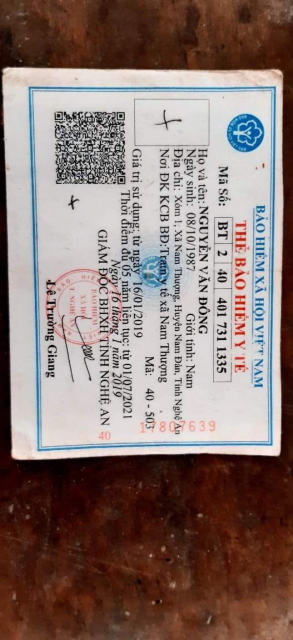 BẢO HIỂM XÃ HỘI VIỆT NAM
THẺ BẢO HIỂM Y TẾ
Mã Số: BT 2 40 401 731 1335
Họ và tên: NGUYỄN VĂN ĐÔNG
Ngày sinh: 08/10/1987 Giới tính: Nam
Địa chỉ: Xóm 1, Xã Nam Thượng, Huyện Nam Đàn, Tỉnh Nghệ An
Nơi ĐK KCB BĐ: Trạm y tế xã Nam Thượng
Mã: 40 - 503
Giá trị sử dụng: từ ngày 16/01/2019
Thời điểm đủ 05 năm liên tục: từ 01/07/2021
Ngày 16 tháng 1 năm 2019
GIÁM ĐỐC BHXH TỈNH NGHỆ AN
Lê Trường Giang
40
17807639